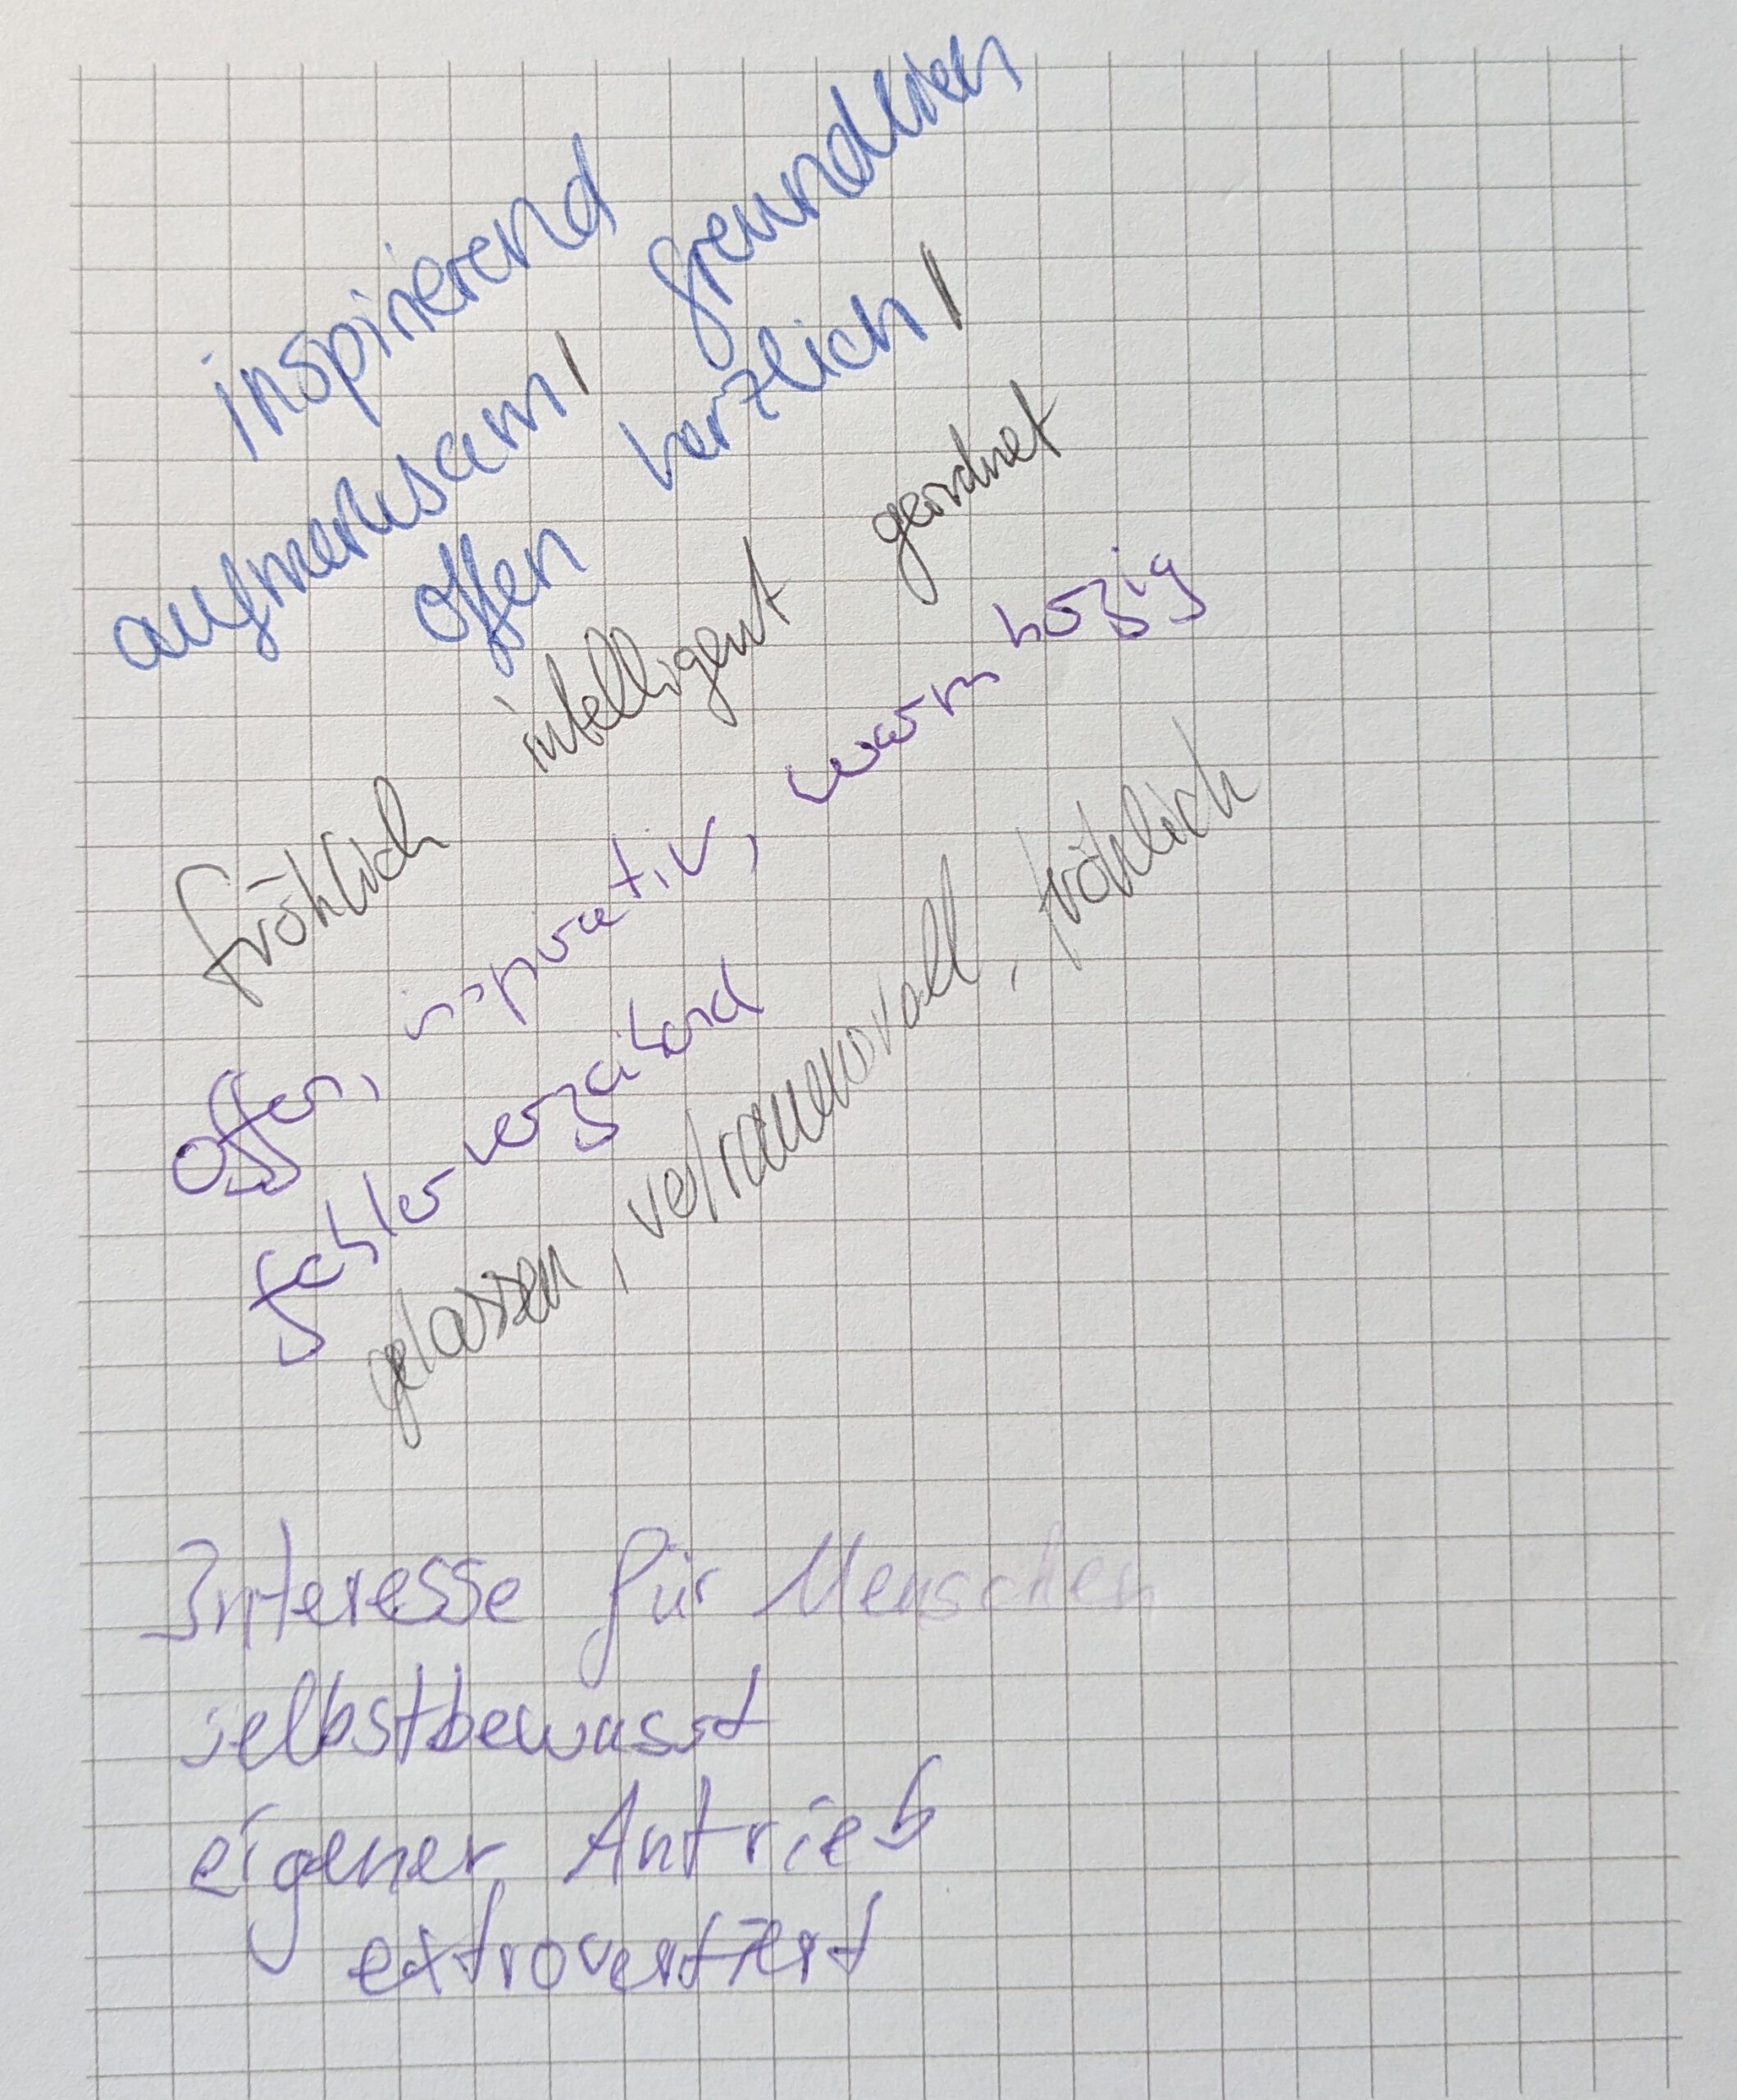 inspirierend freundlich
aufmerksam | herzlich |
offen
fröhlich intelligent geordnet
offen, inspirativ, warmherzig
fehlerverzeihend
gelassen, vertrauensvoll, fröhlich
Interesse für Menschen
selbstbewusst
eigener Antrieb
extrovertiert